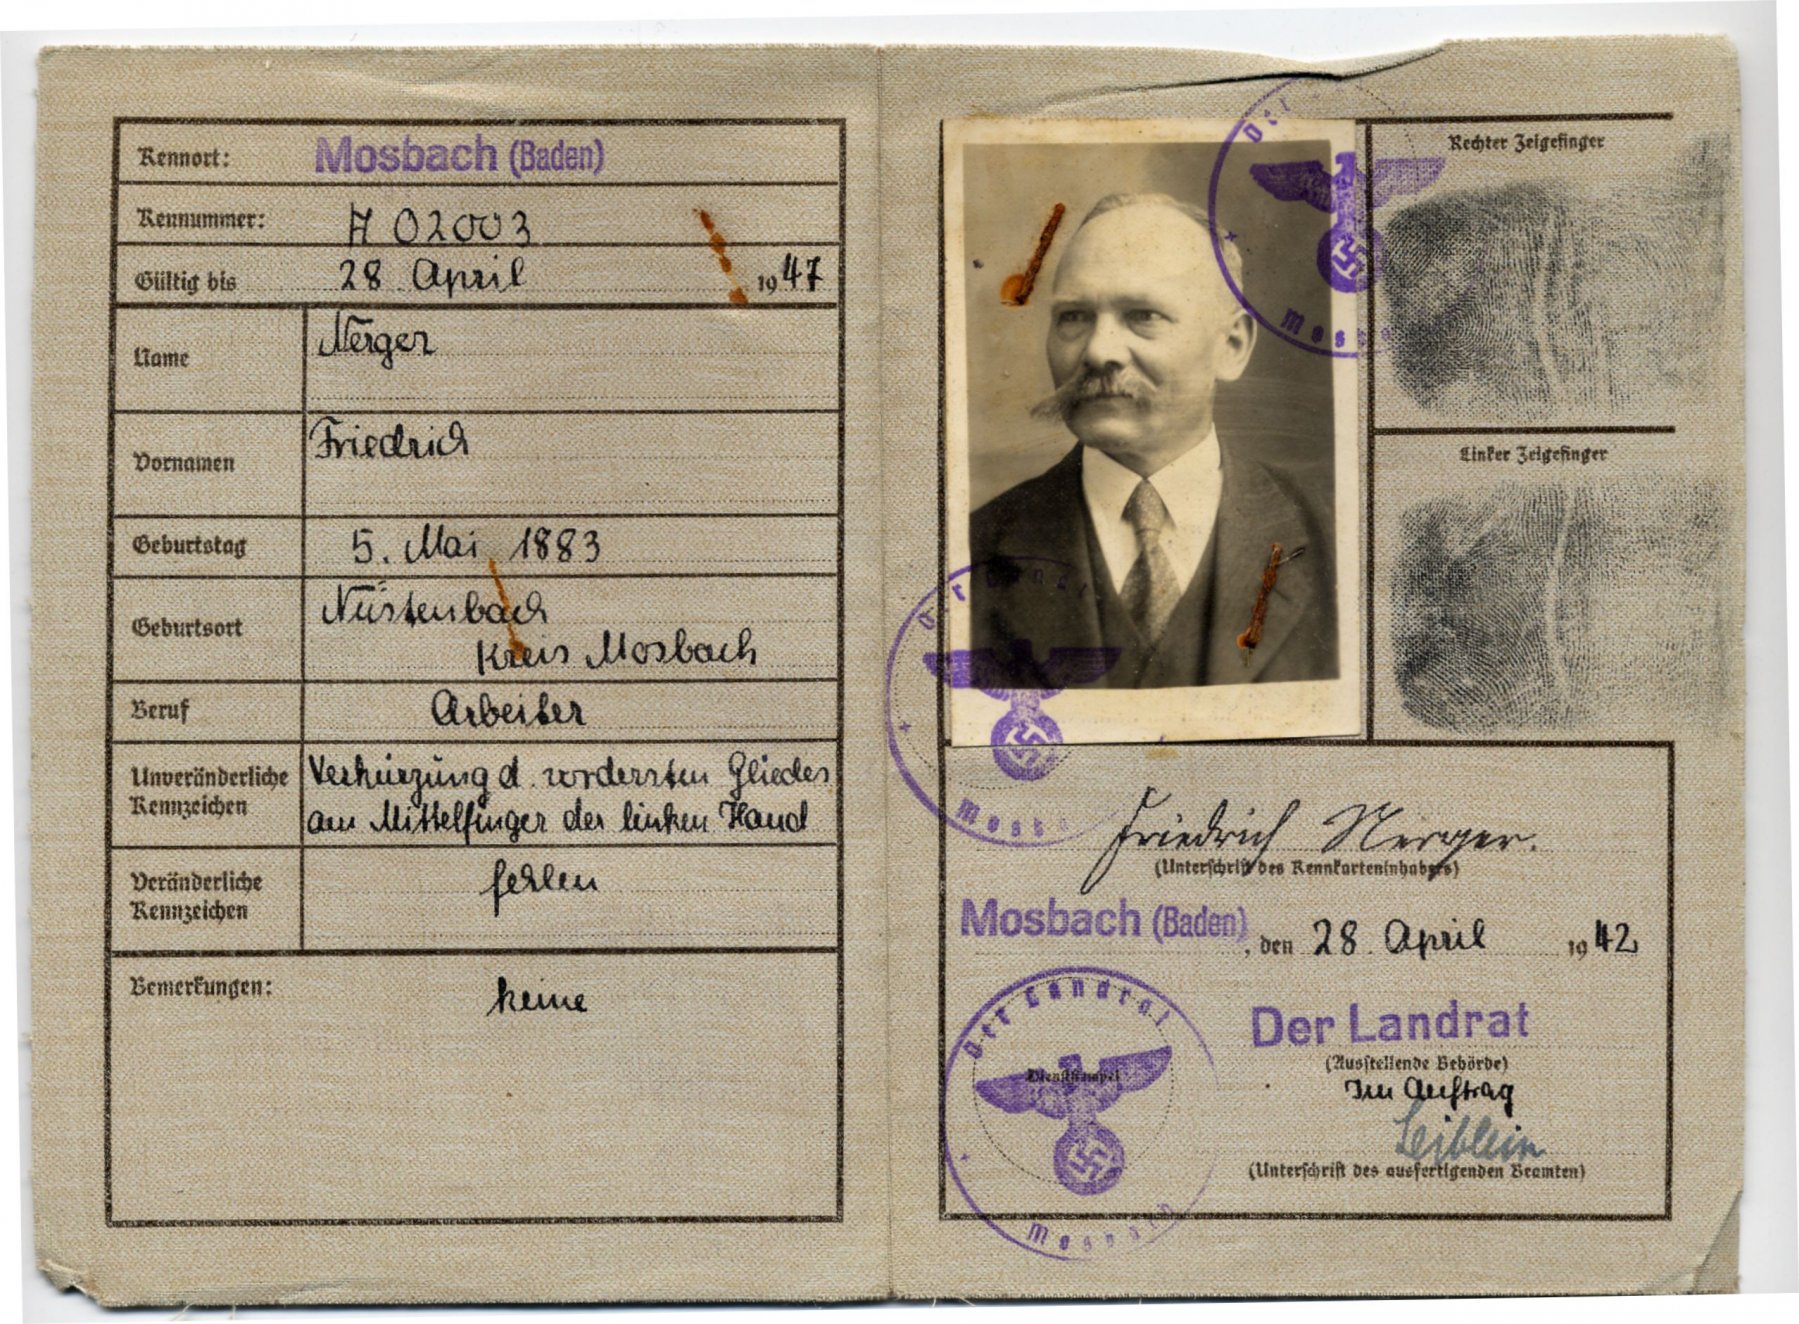 Kennort: Mosbach (Baden)
Kennummer: A 02003
Gültig bis 28. April 1947
Name Nerger
Vornamen Friedrich
Geburtstag 5. Mai 1883
Geburtsort Nüstenbach
Kreis Mosbach
Beruf Arbeiter
Unveränderliche Kennzeichen Verkürzung d. vordersten Gliedes
am Mittelfinger der linken Hand
Veränderliche Kennzeichen fehlen
Bemerkungen: keine
Der Mosba
Rechter Zeigefinger
Linker Zeigefinger
Der Landrat Mosba
Friedrich Nerger.
(Unterschrift des Kennkarteninhabers)
Mosbach (Baden), den 28. April 1942
Der Landrat
Dienststempel
Mosbach
Der Landrat
(Ausstellende Behörde)
Im Auftrag
Leiblein
(Unterschrift des ausfertigenden Beamten)